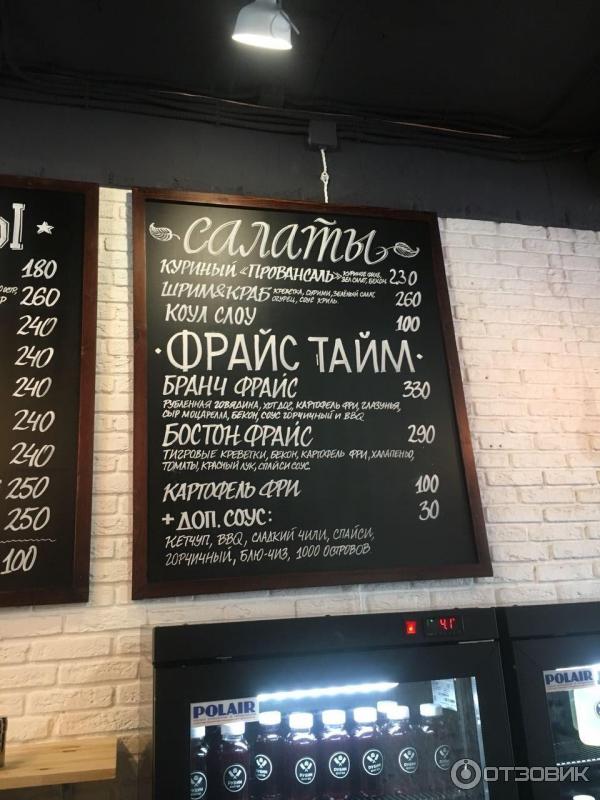 Ы
180
260
240
240
240
240
240
250
250
100
САЛАТЫ
КУРИНЫЙ «ПРОВАНСАЛЬ» КУРИНОЕ ФИЛЕ, 230
ЗЕЛ.САЛАТ, БЕКОН
ШРИМ&КРАБ КРЕВЕТКА, СУРИМИ, ЗЕЛЁНЫЙ САЛАТ, 260
ОГУРЕЦ, СОУС КРИЛЬ
КОУЛ СЛОУ 100
·ФРАЙС ТАЙМ·
БРАНЧ ФРАЙС 330
РУБЛЕННАЯ ГОВЯДИНА, ХОТ ДОГ, КАРТОФЕЛЬ ФРИ, ГЛАЗУНЬЯ,
СЫР МОЦАРЕЛЛА, БЕКОН, СОУС ГОРЧИЧНЫЙ И BBQ
БОСТОН ФРАЙС 290
ТИГРОВЫЕ КРЕВЕТКИ, БЕКОН, КАРТОФЕЛЬ ФРИ, ХАЛАПЕНЬО,
ТОМАТЫ, КРАСНЫЙ ЛУК, СПАЙСИ СОУС
КАРТОФЕЛЬ ФРИ 100
+ ДОП. СОУС: 30
КЕТЧУП, BBQ, СЛАДКИЙ ЧИЛИ, СПАЙСИ,
ГОРЧИЧНЫЙ, БЛЮ-ЧИЗ, 1000 ОСТРОВОВ
4.1°
POLAIR
POLAIR
ОТЗОВИК